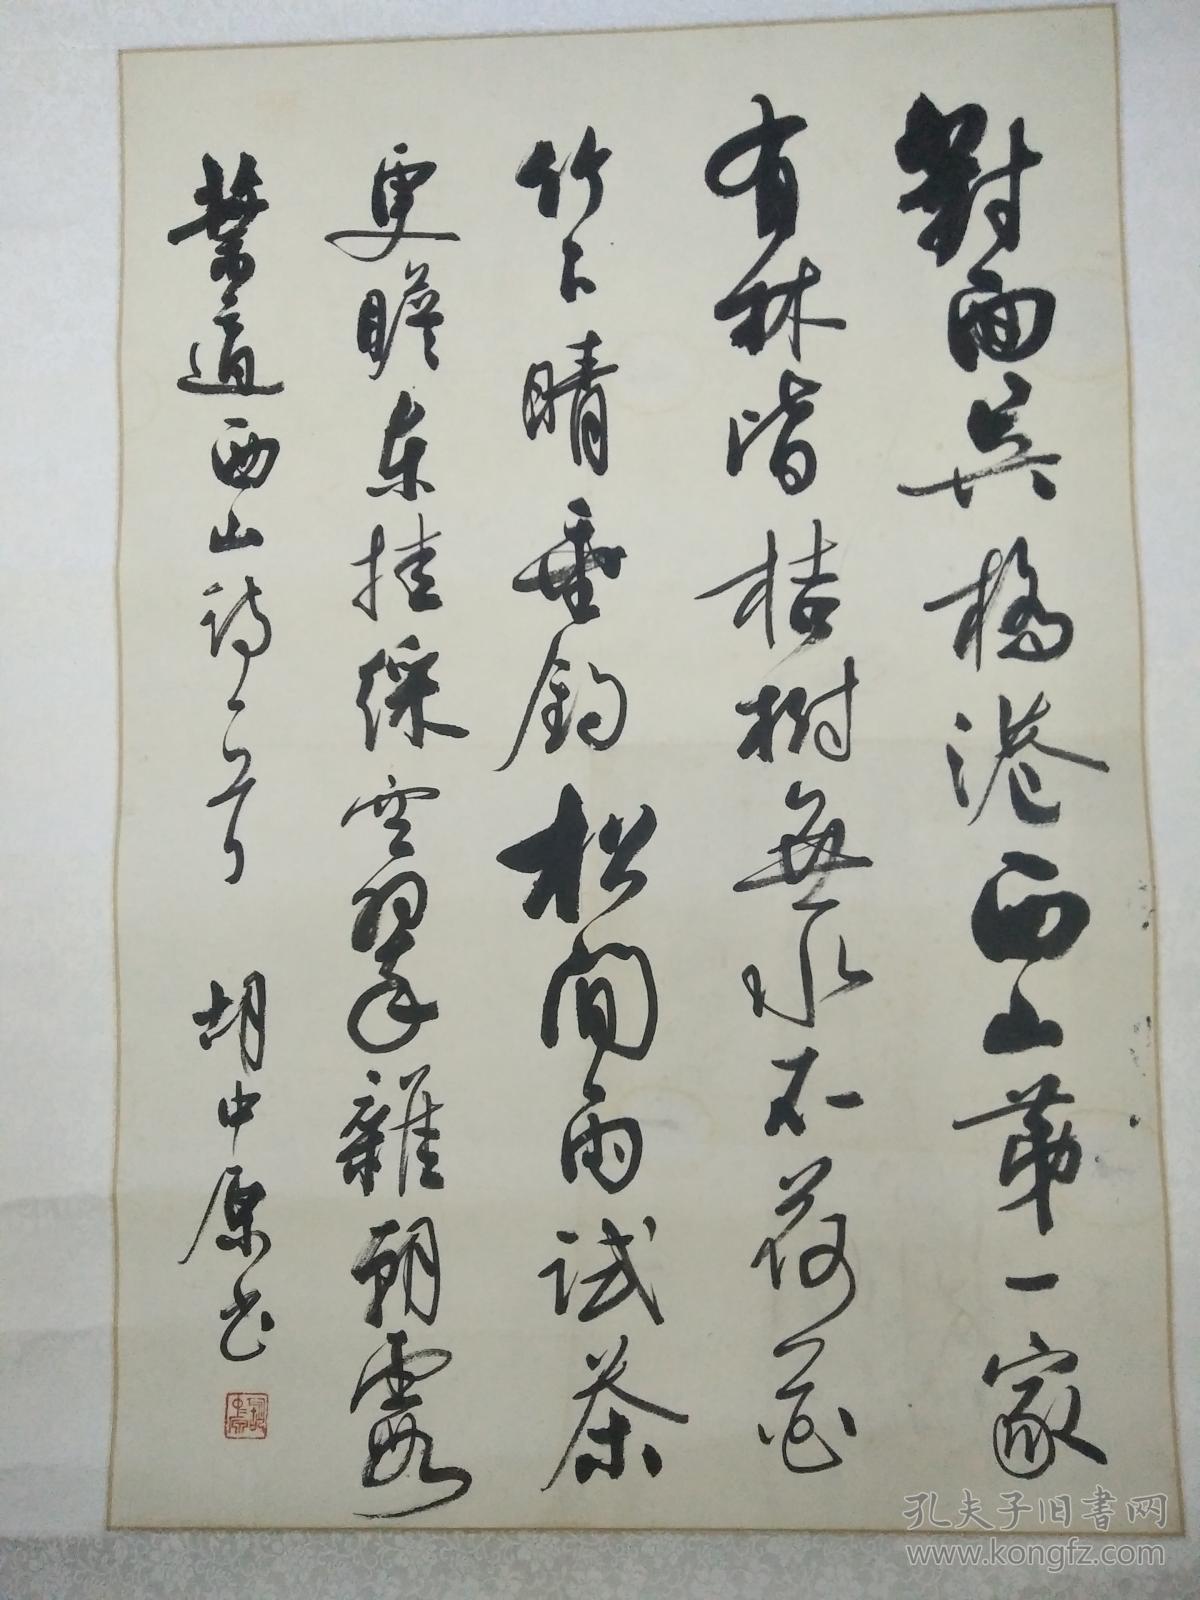 對面吳橋港西山第一家
有林皆桔樹無水不荷花
竹下晴垂釣松間雨試茶
更瞻東挂綵空翠雜朝霞
葉適西山詩一首 胡中原書
孔夫子旧書网
www.kongfz.com